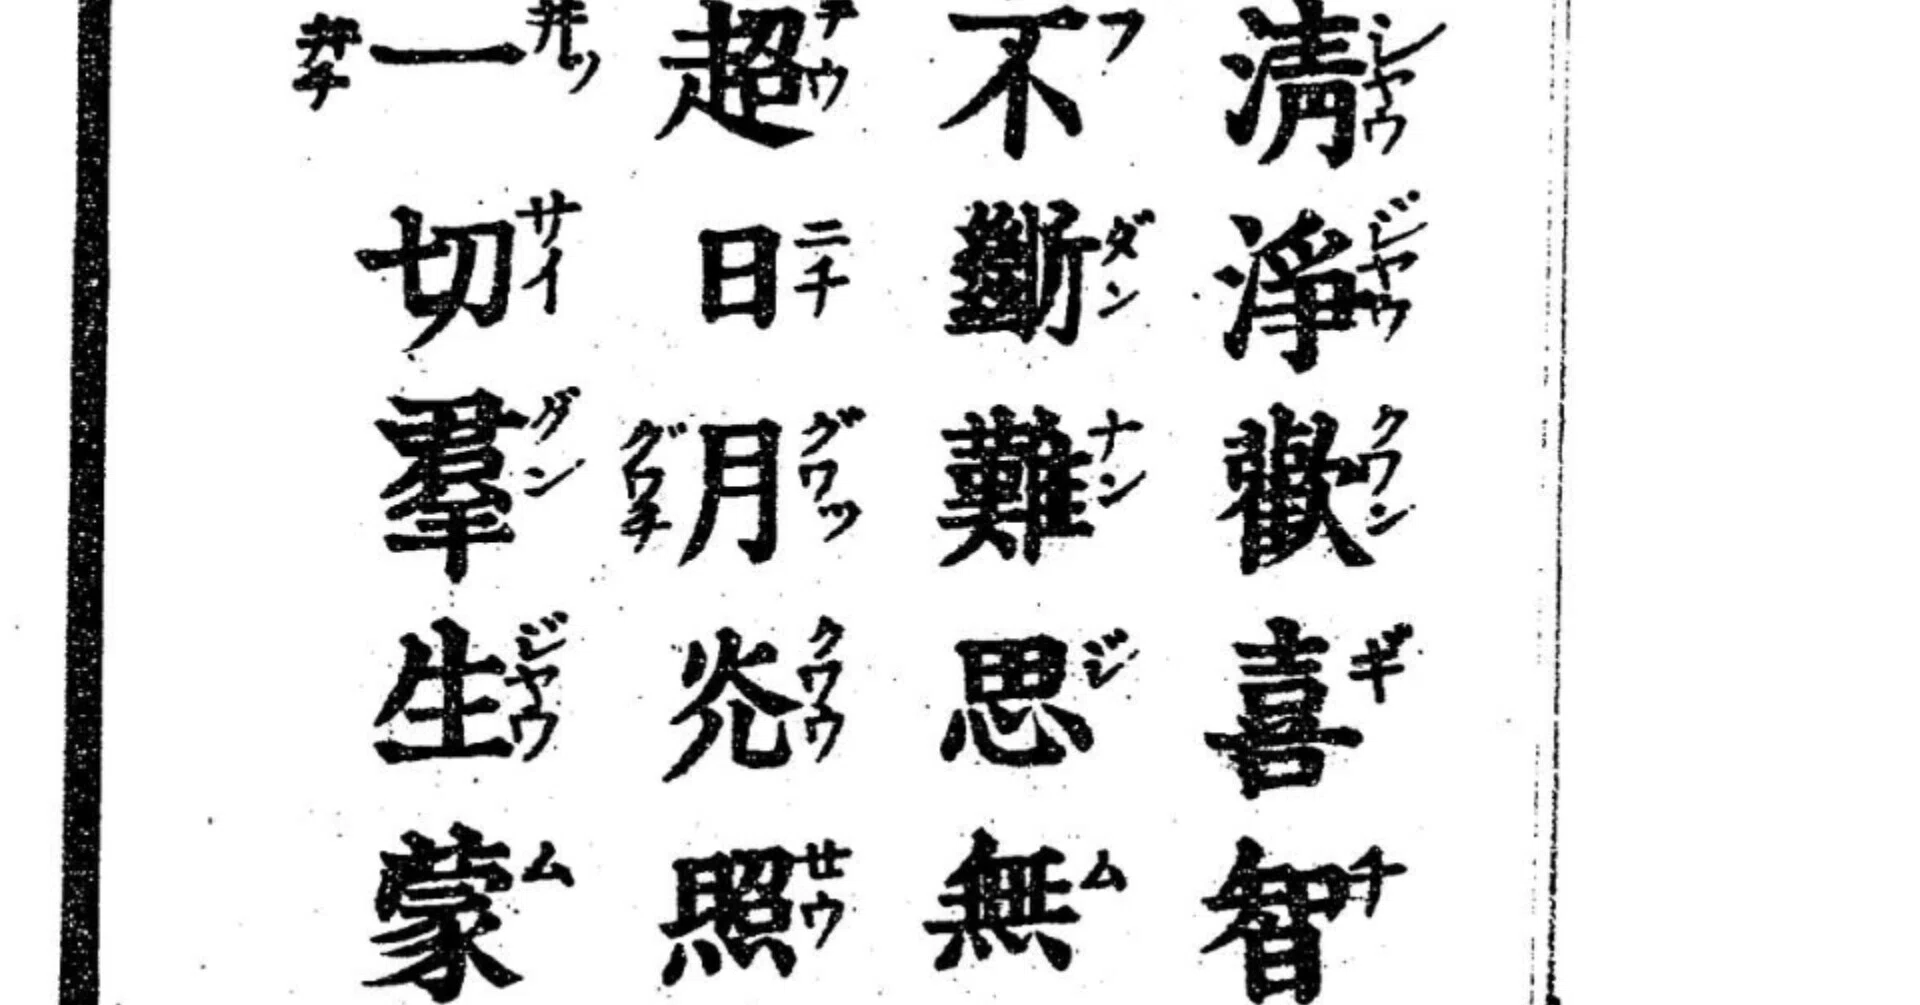 清淨歡喜智
シヤウジヤウクワンギチ
不斷難思無
フダンナンジム
超日月炛照
チウニチグワツクワウセウ
グワチ
一切羣生蒙
井ツサイグンジヤウム
井チ